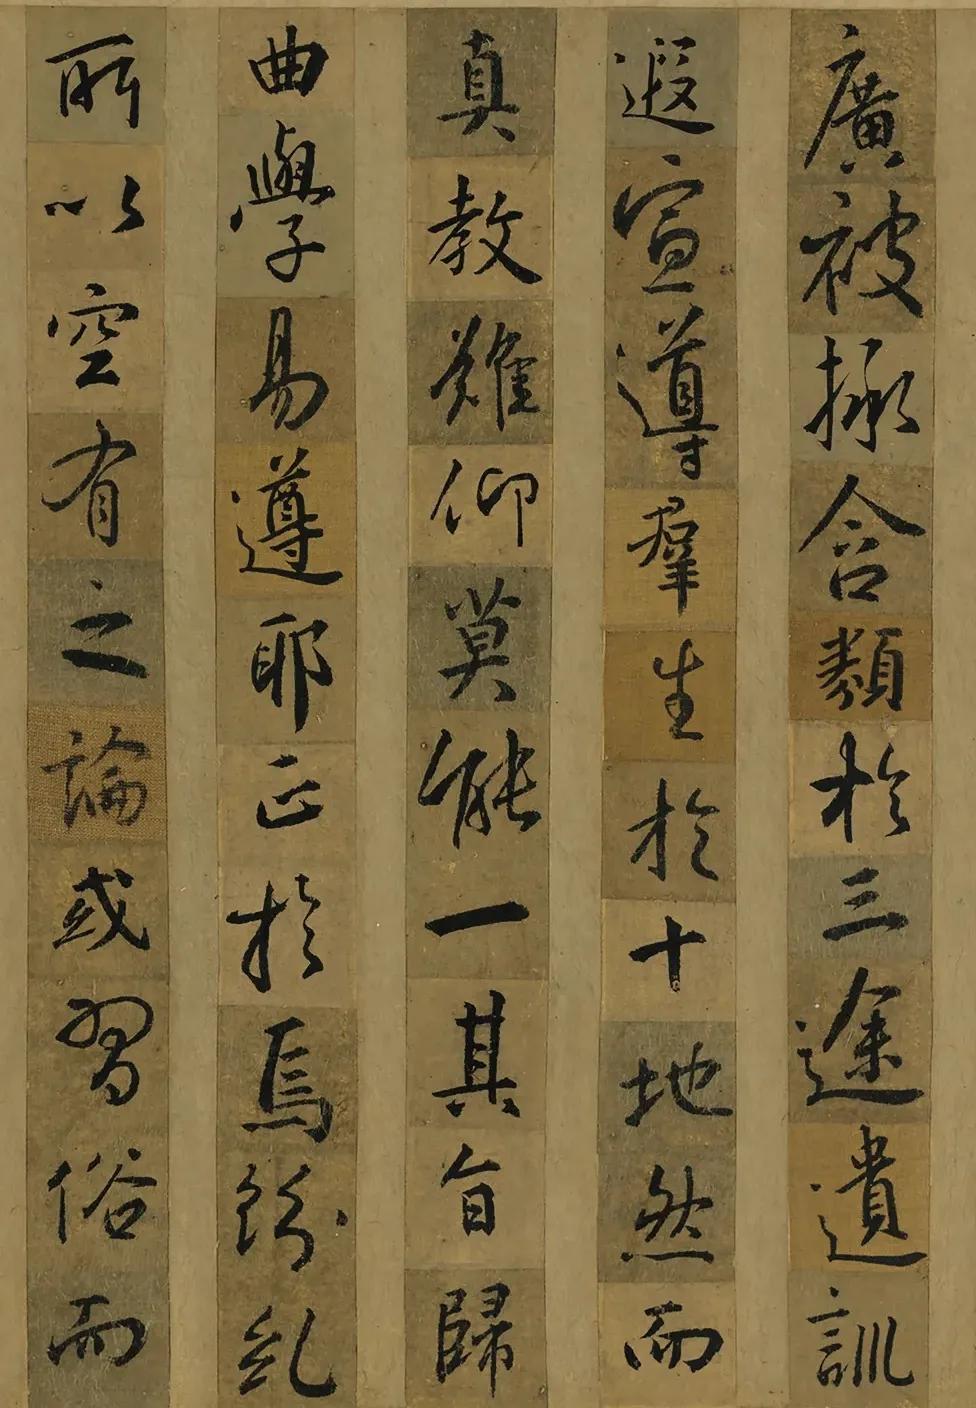 廣被拯含類於三途遺訓
遐宣導羣生於十地然而
真教難仰莫能一其旨歸
曲學易遵耶正於焉紛糺
所以空有之論或習俗而